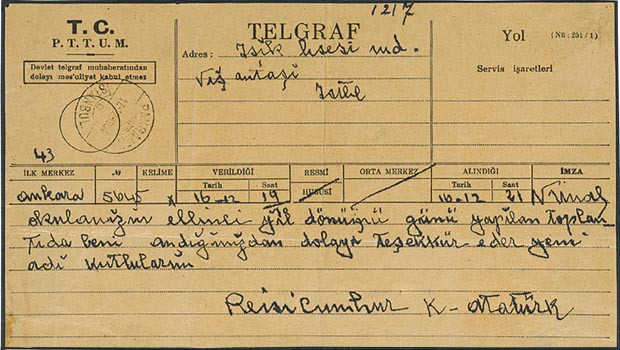 1217
T. C.
P. T. T. U. M.
Devlet telgraf muhaberatından
dolayı mes'uliyet kabul etmez
İSTANBUL
43
TELGRAF
Adres : Işik lisesi md.
Nişantaşi
İstbl
Yol (Nü : 251/1)
Servis işaretleri
İLK MERKEZ № KELİME VERİLDİĞİ RESMİ ORTA MERKEZ ALINDIĞI İMZA
Tarih Saat HUSUSİ Tarih Saat
ankara 5645 16-12 19 16-12 21
okulanızın ellinci yıl dönümü günü yapılan toplan-
tıda beni andığınızdan dolayı teşekkür eder yeni
adı kutlularım
Reisicumhur K- Atatürk